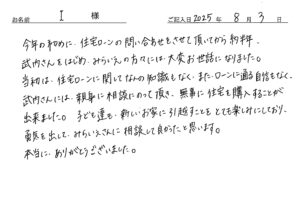 お名前 I 様 ご記入日 2025年 8月 3日
今年の初めに、住宅ローンの問い合わせをさせて頂いてから約半年、
武内さんをはじめ、みらいえの方々には、大変お世話になりました。
当初は、住宅ローンに関してなんの知識もなく、また、ローンに通る自信もなく、
武内さんには、親身に相談にのって頂き、無事に住宅を購入することが
出来ました。子ども達も、新しいお家に引越すことをとても楽しみにしており、
勇気を出して、みらいえさんに相談して良かったと思います。
本当に、ありがとうございました。